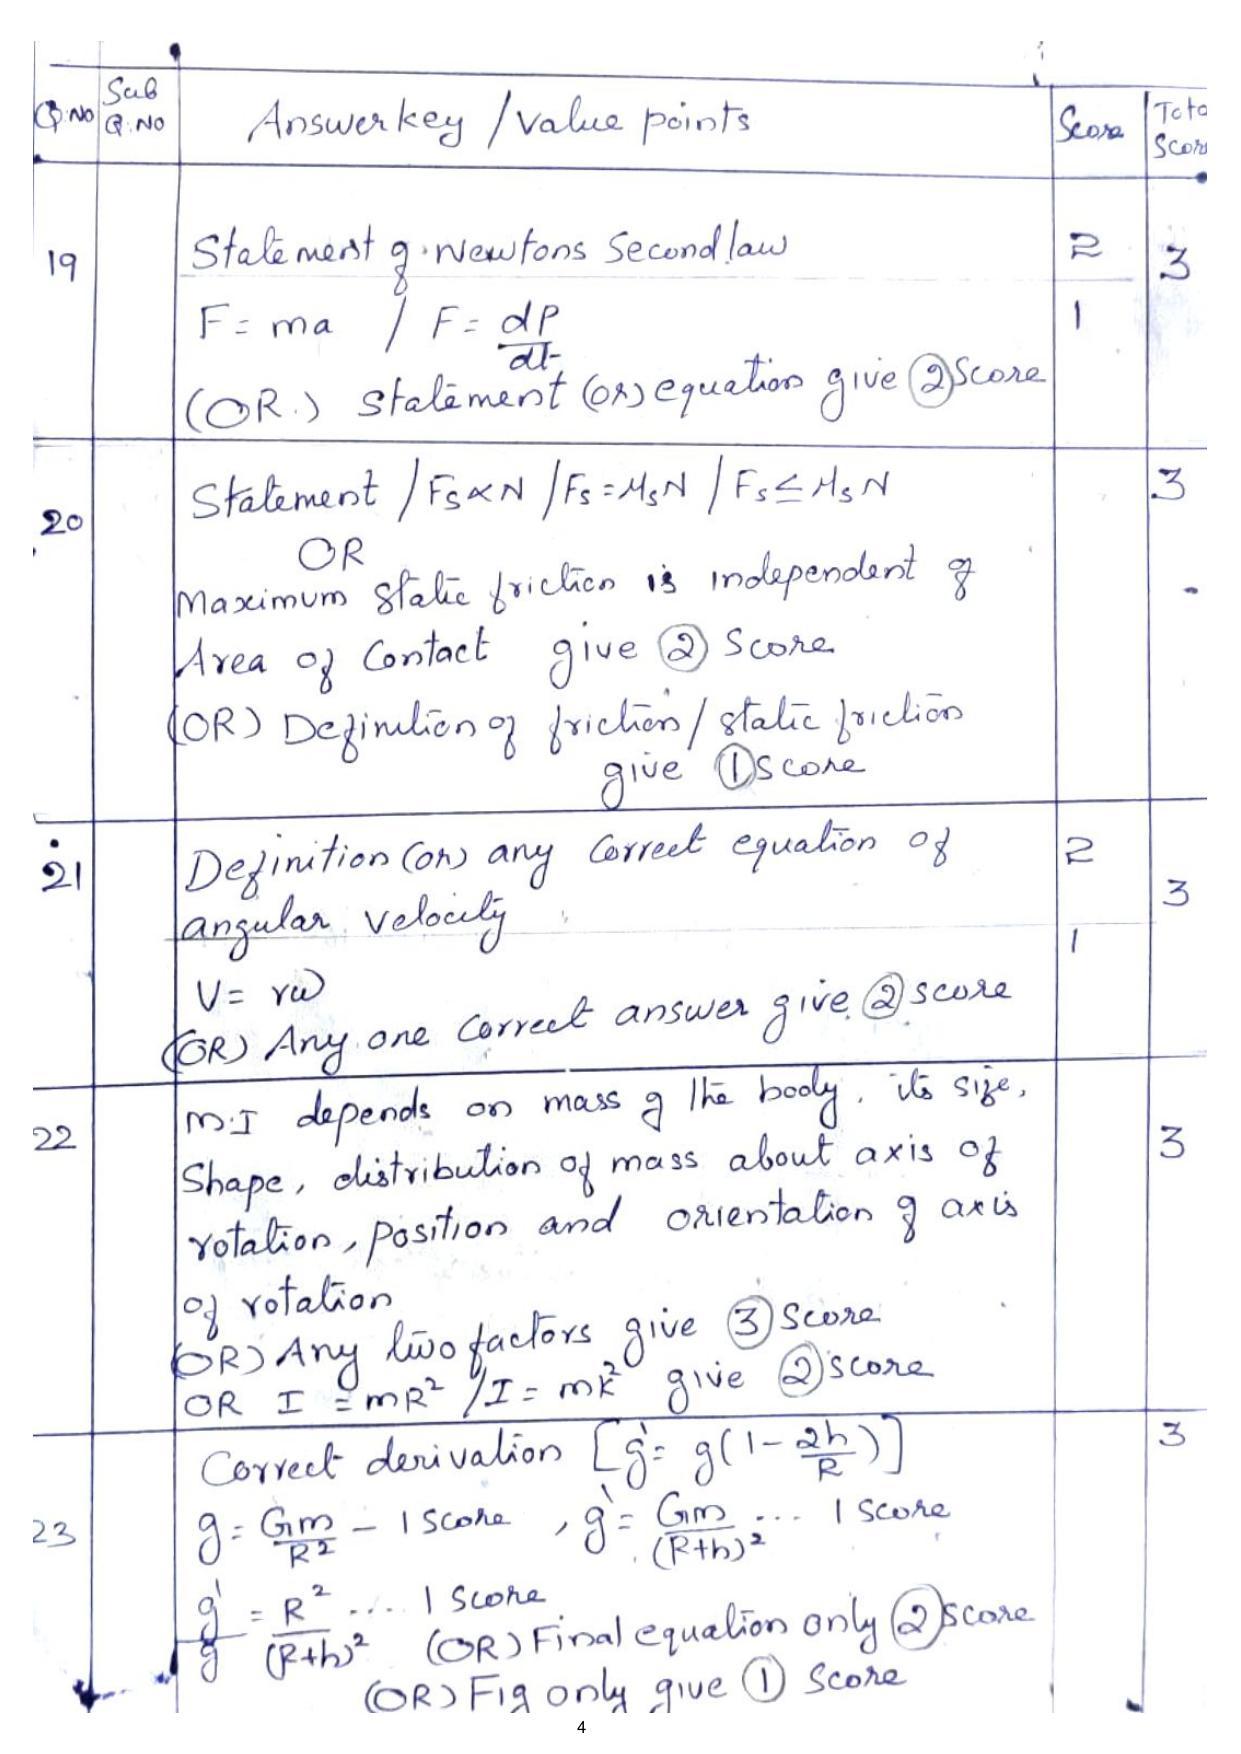 Q.NO Sub Q.NO Answer key / Value points Score Tota Scor
19 Statement of Newtons Second law 2 3
F = ma / F = dP/dt 1
(OR.) Statement (or) equation give ② Score
20 Statement / Fs ∝ N / Fs = μsN / Fs ≤ μsN 3
OR
Maximum static friction is independent of
Area of Contact give ② Score
(OR) Definition of friction / static friction
give ① Score
21 Definition (or) any Correct equation of 2 3
angular velocity
V = rω 1
(OR) Any one Correct answer give ② score
22 M.I depends on mass of the body, its size, 3
Shape, distribution of mass about axis of
rotation, position and orientation of axis
of rotation
(OR) Any two factors give ③ Score
OR I = mR² / I = mk² give ② score
23 Correct derivation [g' = g(1 - 2h/R)] 3
g = Gm/R² - 1 Score , g' = Gm/(R+h)² ... 1 Score
g'/g = R²/(R+h)² .... 1 Score
(OR) Final equation only ② score
(OR) Fig only give ① Score
4